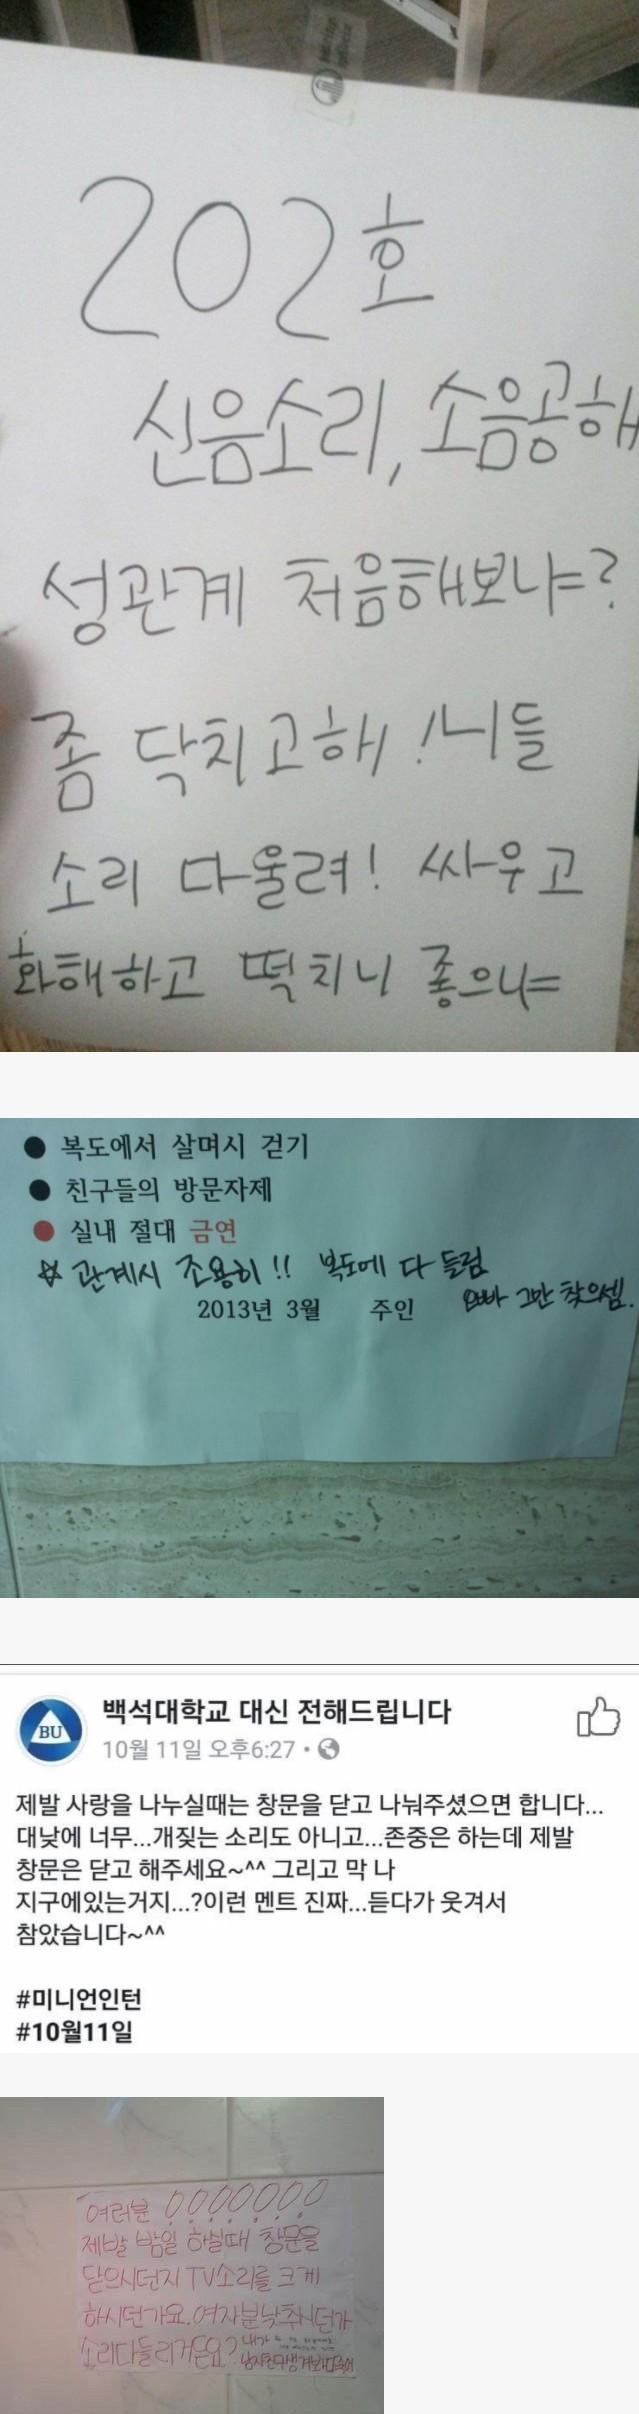 202호
신음소리, 소음공해
성관계 처음해보냐?
좀 닥치고해! 니들
소리 다울려! 싸우고
화해하고 떡치니 좋으냐
● 복도에서 살며시 걷기
● 친구들의 방문자제
● 실내 절대 금연
☆ 관계시 조용히!! 복도에 다 들림
2013년 3월 주인 오빠 그만 찾으셈.
BU
백석대학교 대신 전해드립니다
10월 11일 오후6:27 ·
제발 사랑을 나누실때는 창문을 닫고 나눠주셨으면 합니다...
대낮에 너무...개짖는 소리도 아니고...존중은 하는데 제발
창문은 닫고 해주세요~^^ 그리고 막 나
지구에있는거지...?이런 멘트 진짜...듣다가 웃겨서
참았습니다~^^
#미니언인턴
#10월11일
여러분!!!!!!!
제발 밤일 하실때 창문을
닫으시던지 TV소리를 크게
하시던가요. 여자분낮추시던가
소리다들리거든요? 내가